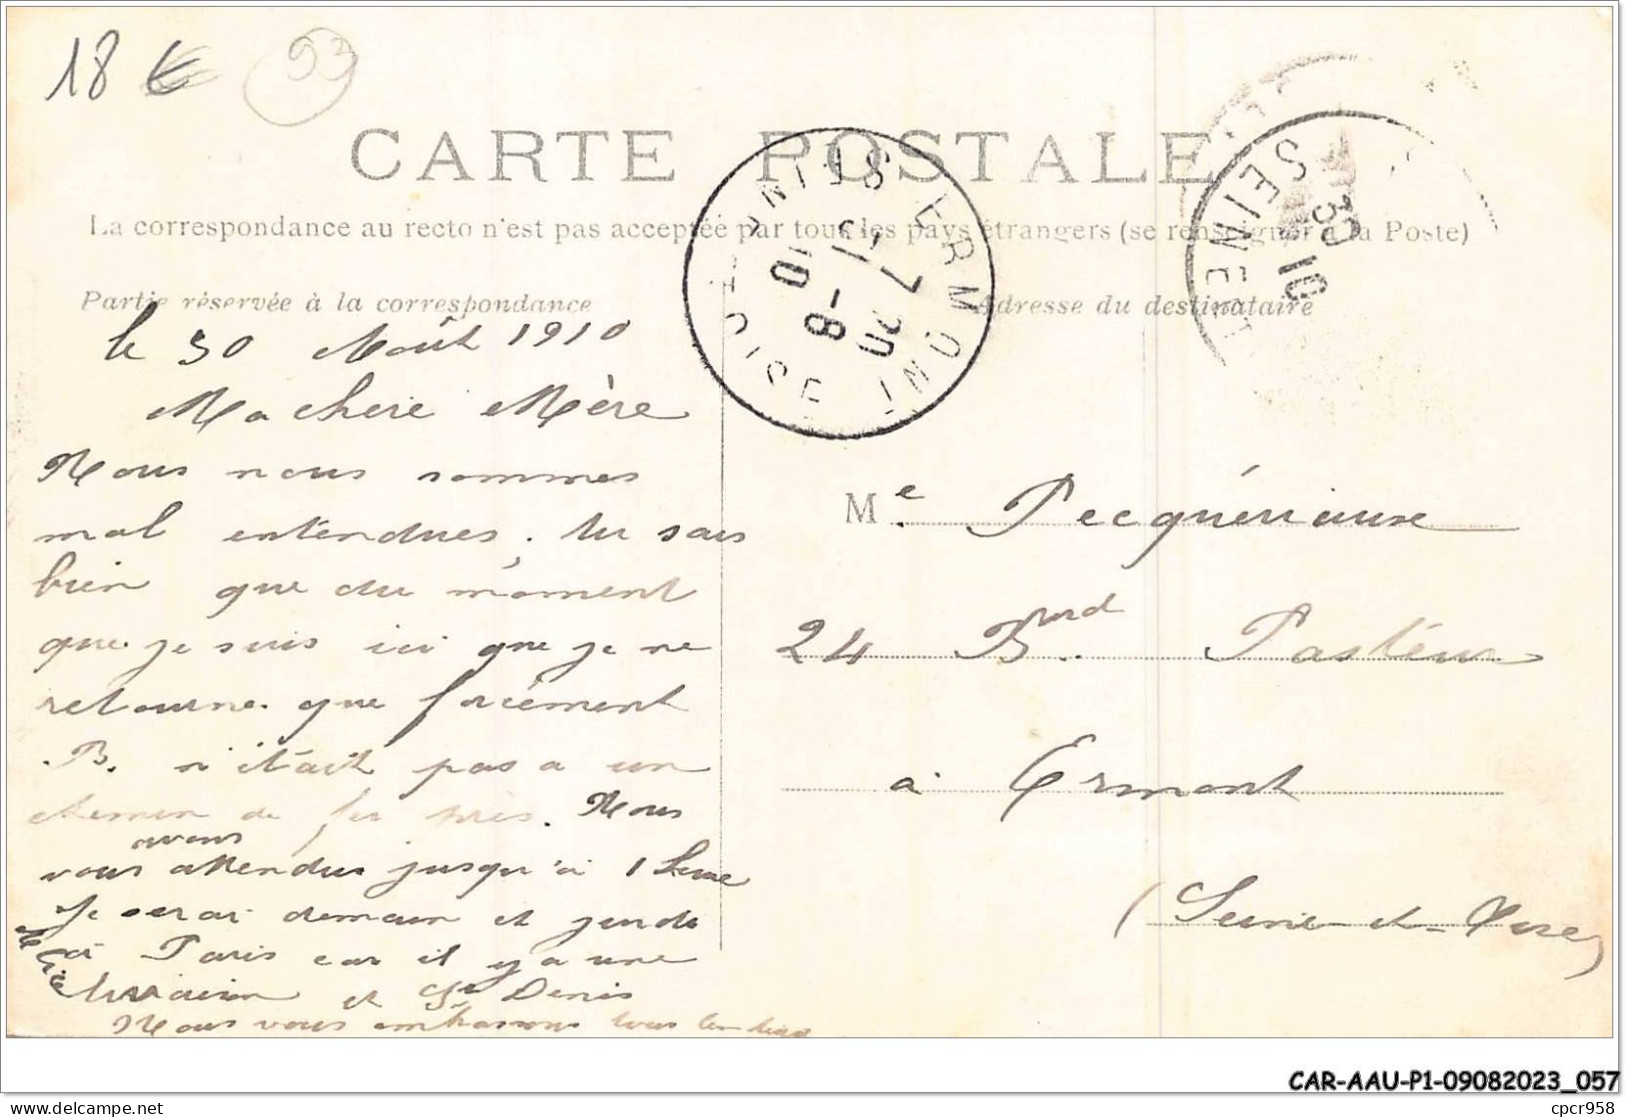 18 €
93
CARTE POSTALE
La correspondance au recto n'est pas acceptée par tous les pays étrangers (se renseigner à la Poste)
Partie réservée à la correspondance
Adresse du destinataire
ERMONT
SEINE-ET-OISE
7 20
31 -8
10
SEINE-ET
30
10
le 30 Août 1910
Ma chere Mère
Nous nous sommes
mal entendues. tu sais
bien que du moment
que je suis ici que je ne
retourne que forcément
B. n'était pas a un
chemin de fer près. Nous
avons
vous attendus jusqu'à 1 heure
Je serai demain et jeudi
à Paris car il y a une
livraison et St Denis
Nous vous embrassons tous
Me. Pecquériaux
24 Bard. Pasteur
à Ermont
(Seine-et-Oise)
CAR-AAU-P1-09082023_057
delcampe.net
cpcr958